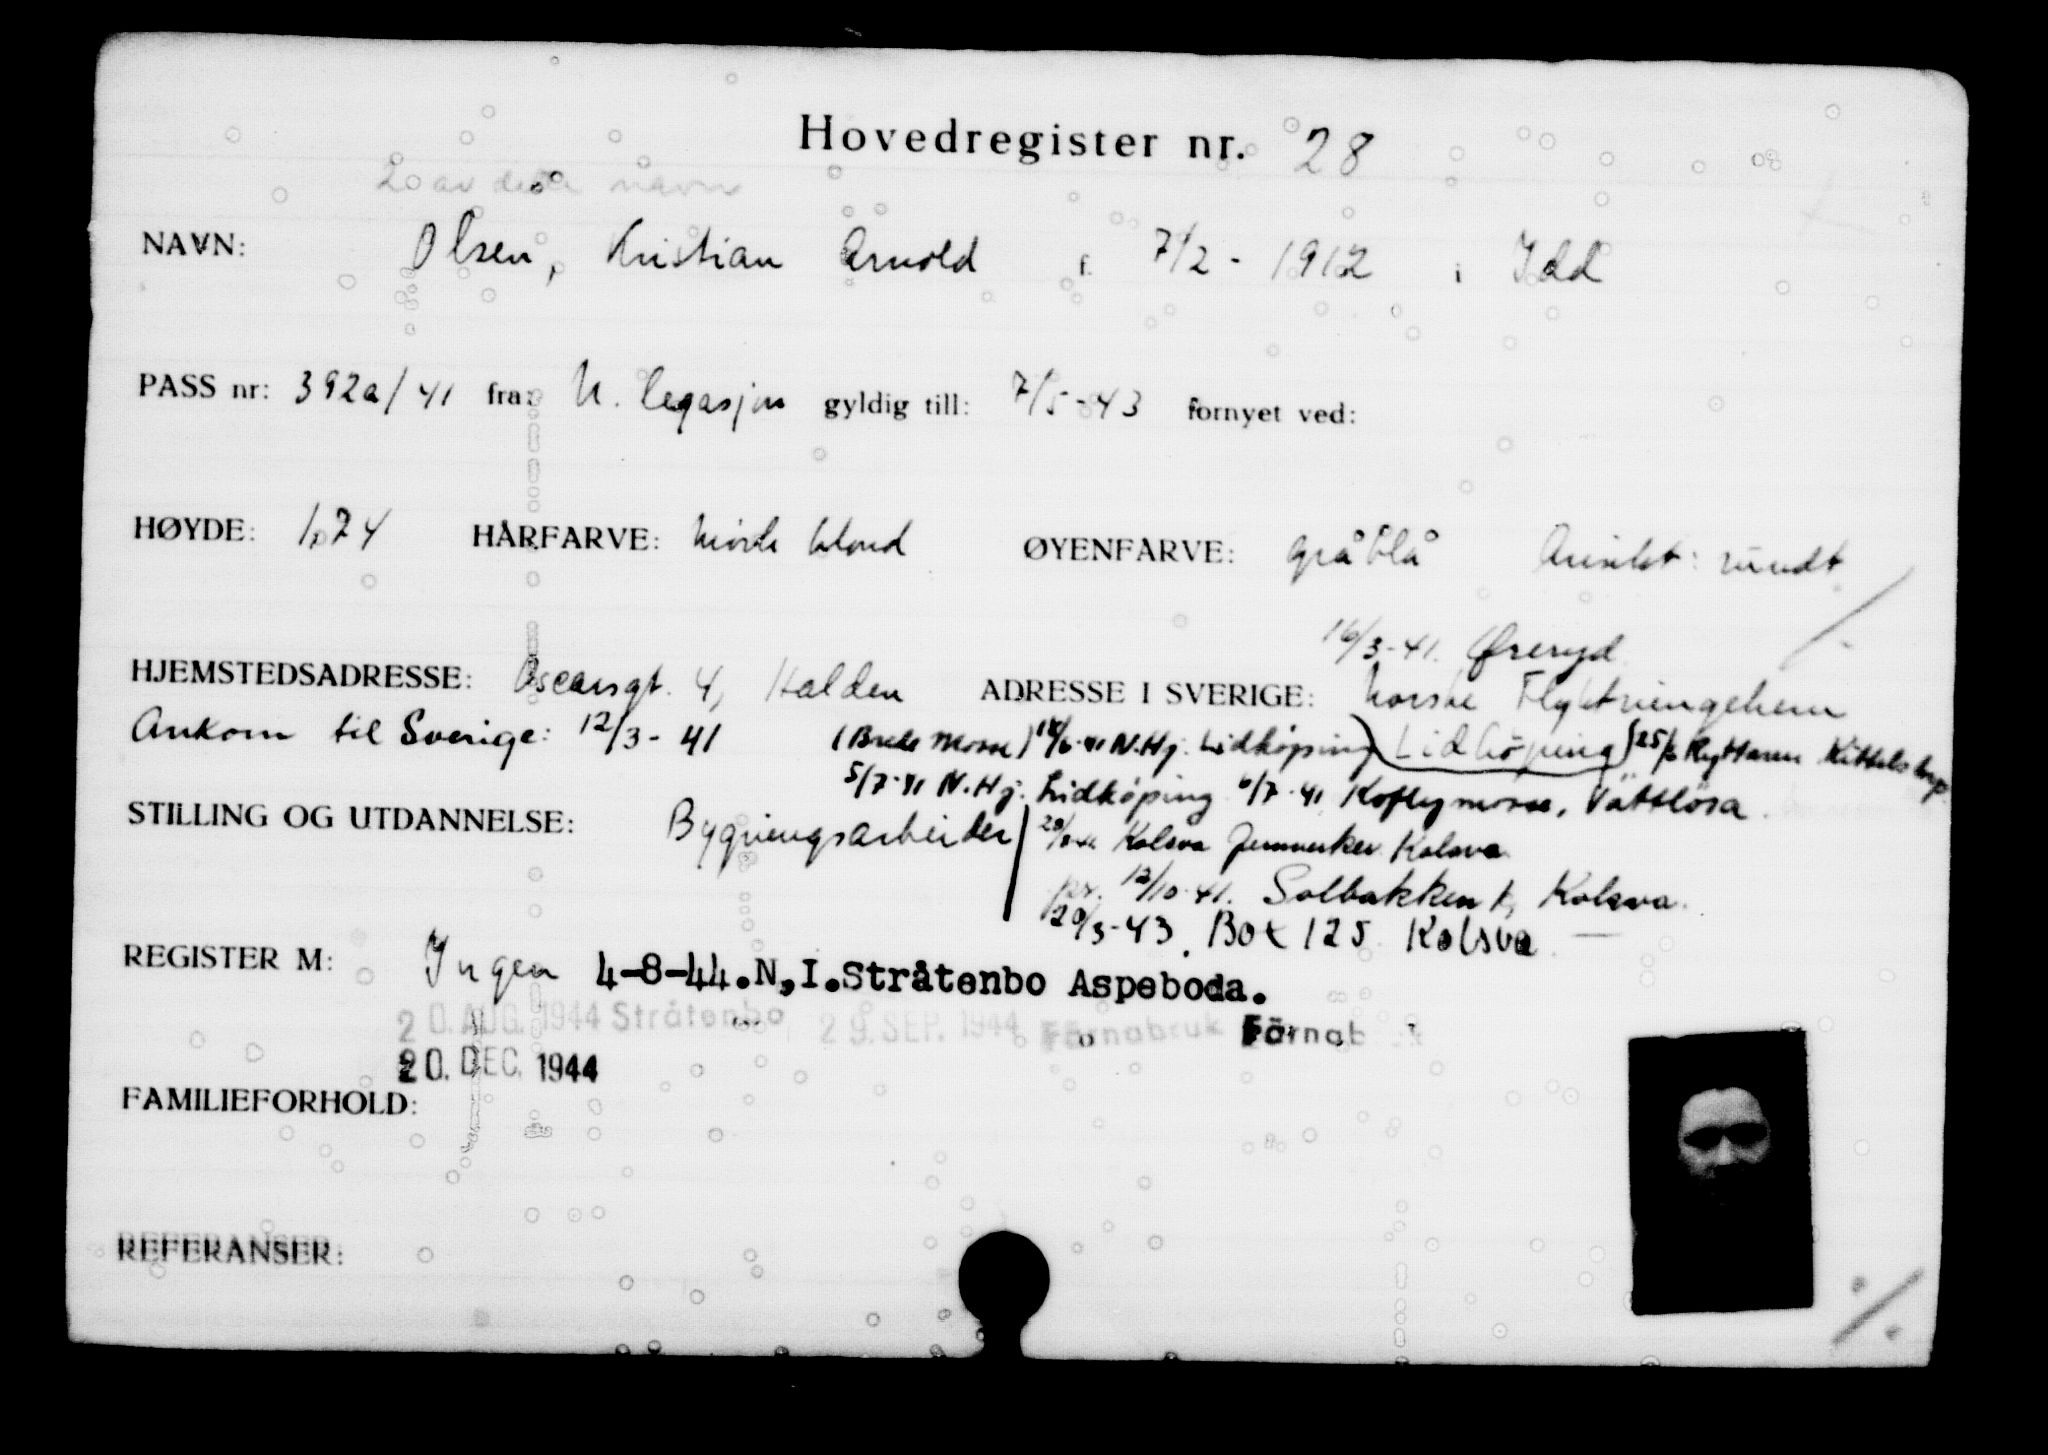 Hovedregister nr. 28
2 av dette navn
NAVN: Olsen, Kristian Arnold f. 7/2 - 1912 i Idd
PASS nr: 392a/41 fra: N. legasjon gyldig till: 7/5-43 fornyet ved:
HØYDE: 1,74 HÅRFARVE: mørk blond ØYENFARVE: gråblå Ansikt: rundt
16/3-41. Øreryd
HJEMSTEDSADRESSE: Oscarsgt. 4, Halden ADRESSE I SVERIGE: Norske Flyktningehem
Ankom til Sverige: 12/3 - 41 (Breds mosse) N.Hj. Lidköping (Lidköping) 25/6 Ryttaren
5/7-41 N.Hj. Lidköping 6/7-41 Koflymosse, Vättlösa
STILLING OG UTDANNELSE: Bygningsarbeider Kolsva Jernverker Kolsva.
pr. 12/10-41. Solbakken Kolsva.
20/3-43. Box 125 Kolsva
REGISTER M: Ingen 4-8-44.N,I.Stråtenbo Aspeboda.
20. AUG. 1944 Stråtenbo 29. SEP. 1944 Färnabruk Färnab
20. DEC. 1944
FAMILIEFORHOLD:
REFERANSER: